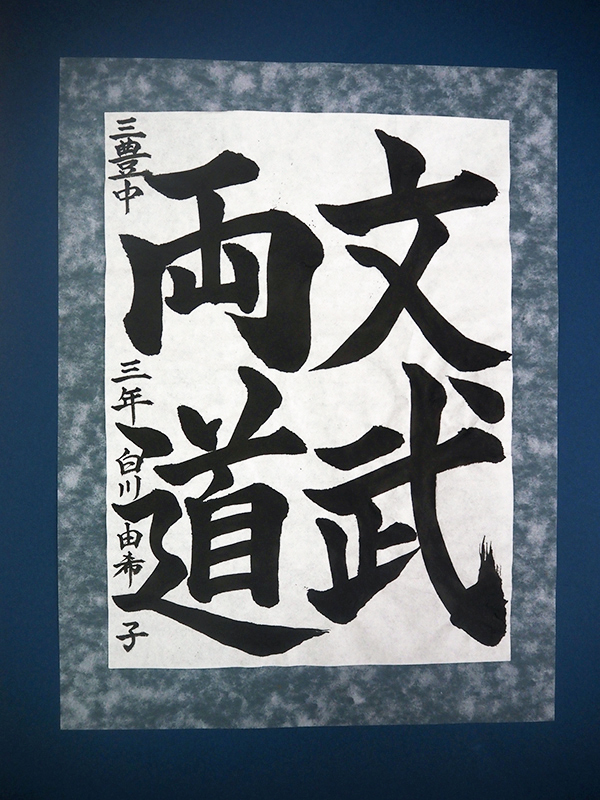 文武
両道
三豊中 三年 白川由希子